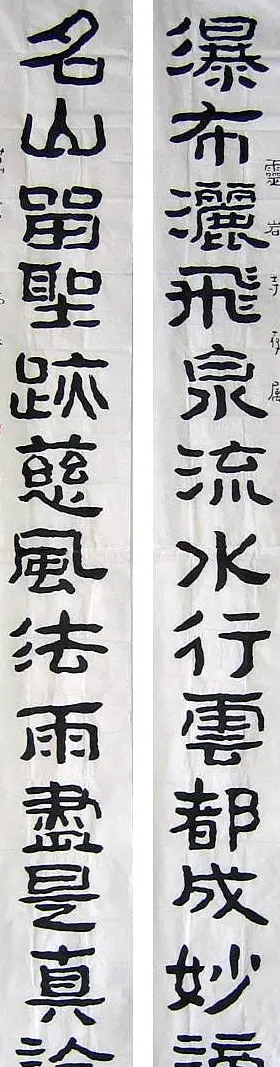 靈岩寺
瀑布灑飛泉流水行雲都成妙諦
名山留聖跡慈風法雨盡是真詮